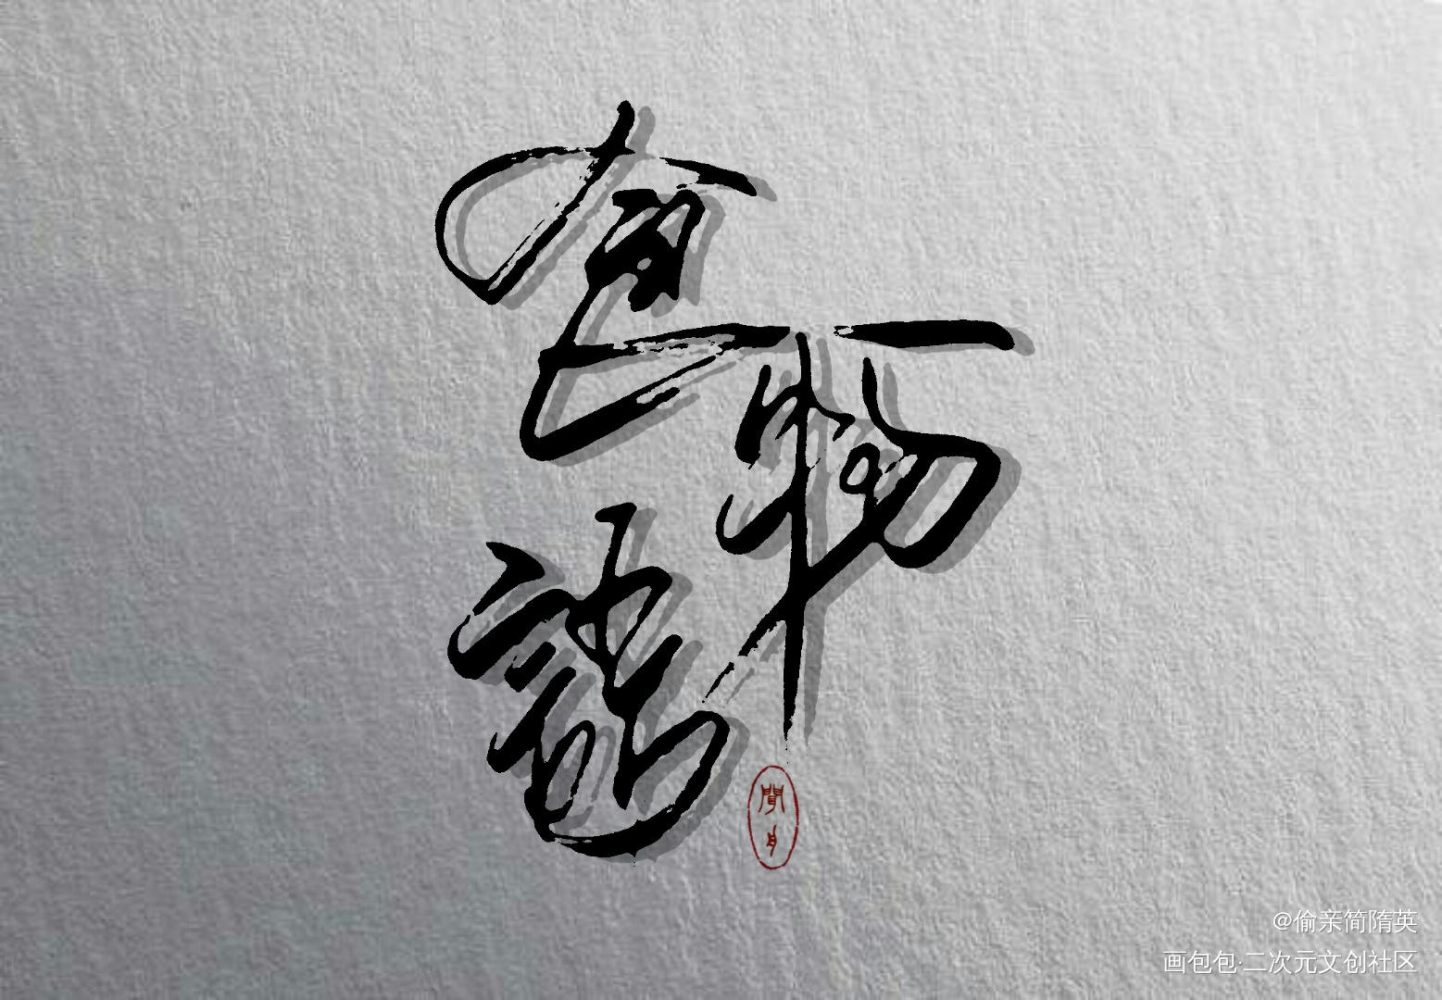 食物語
聞
@偷亲简隋英
画包包·二次元文创社区